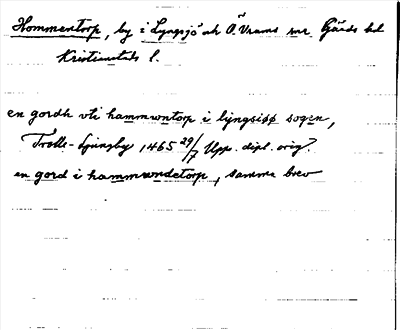 Hommentorp, by i Lyngsjö ock Ö. Vrams snr Gärds hd
Kristianstads l.
en gordh vti hammwntorp i lyngsiøø sogen,
Trolle-Ljungby 1465 29/7 Upp. dipl. orig.
en gord i hammwndetorp, samma brev